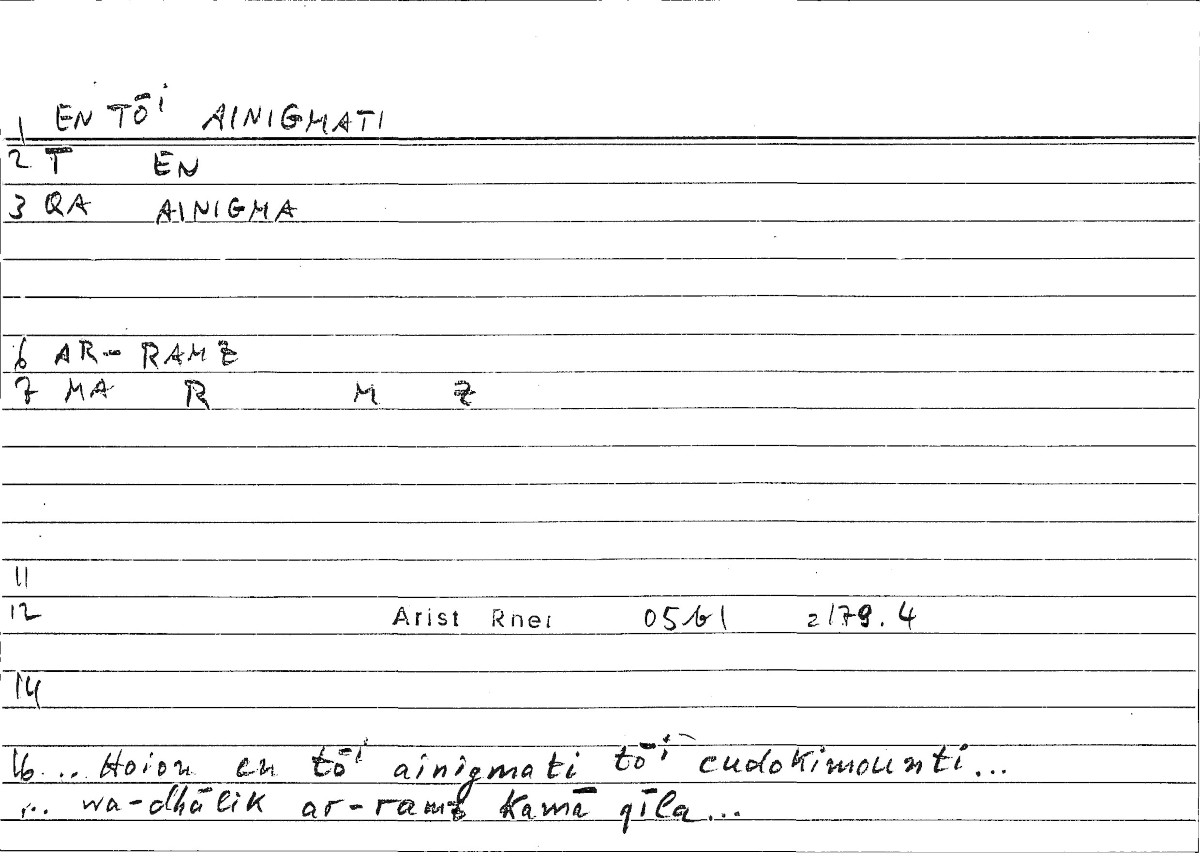 1 EN TŌi AINIGMATI
2 T EN
3 QA AINIGMA
6 AR-RAMZ
7 MA R M Z
11
12 Arist Rhet 05b1 2179.4
14
16 ... Hoion en tōi ainigmati tōi eudokimounti...
... wa-dhālik ar-ramz kamā qīla...